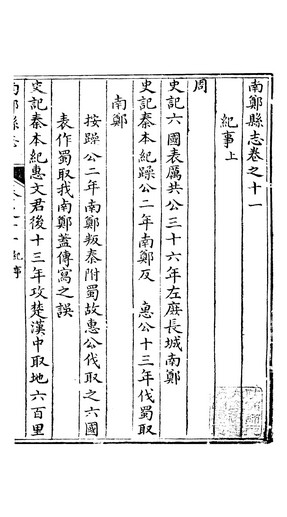 南鄭縣志卷之十一
紀事上
周
史記六國表厲共公三十六年左庶長城南鄭
史記秦本紀躁公二年南鄭反　惠公十三年伐蜀取
南鄭
按躁公二年南鄭叛秦附蜀故惠公伐取之六國
表作蜀取我南鄭蓋傳寫之誤
史記秦本紀惠文君後十三年攻楚漢中取地六百里
南鄭縣志
卷之十一
紀事